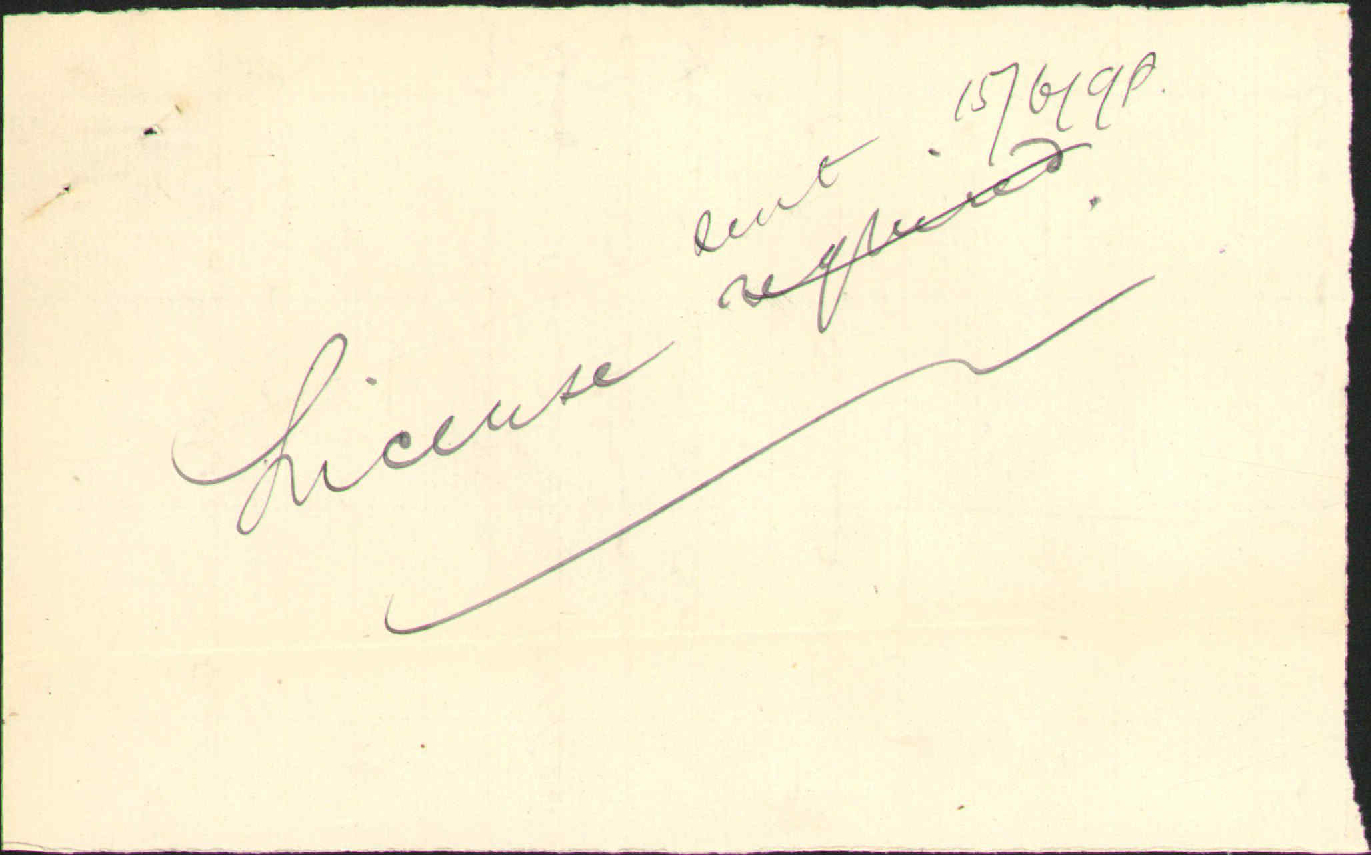 15/6/98.
sent
License required.